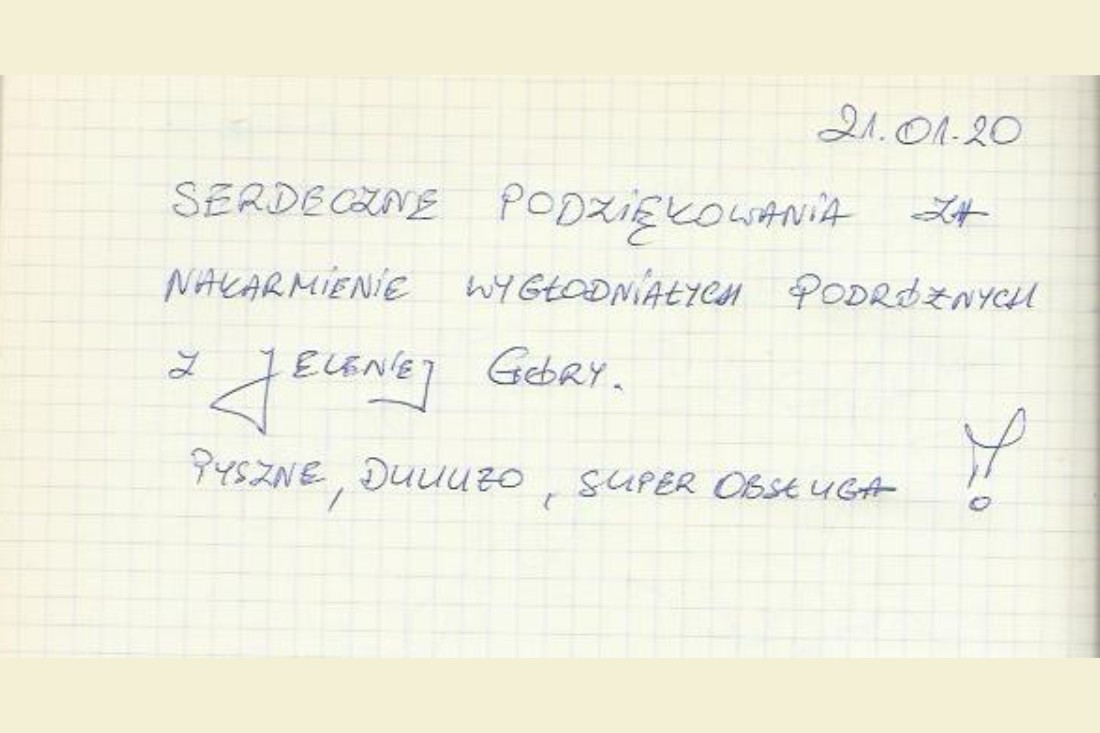 21.01.20
SERDECZNE PODZIĘKOWANIA ZA
NAKARMIENIE WYGŁODNIAŁYCH PODRÓŻNYCH
Z JELENIEJ GÓRY.
PYSZNE, DUUUŻO, SUPER OBSŁUGA !